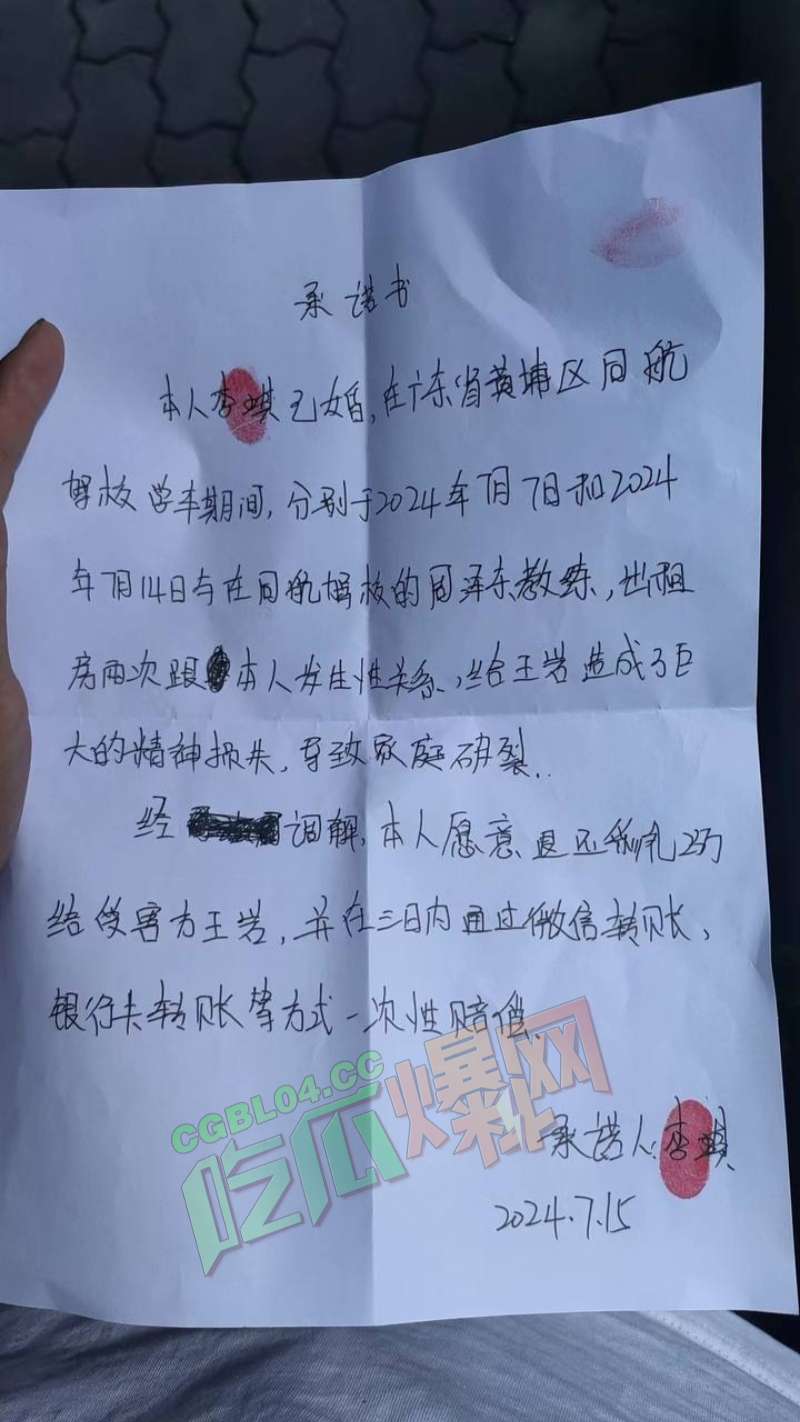 承诺书
本人李琪已婚,在广东省黄埔区同航
驾校学车期间,分别于2024年7月7日和2024
年7月14日与在同航驾校的周泽东教练,出租
房两次跟本人发生性关系,给王岩造成了巨
大的精神损失,导致家庭破裂..
经 调解,本人愿意退还彩礼2万
给受害方王岩,并在三日内通过微信转账,
银行卡转账等方式一次性赔偿.
CGBL04.CC
吃瓜爆网
承诺人:李琪
2024.7.15